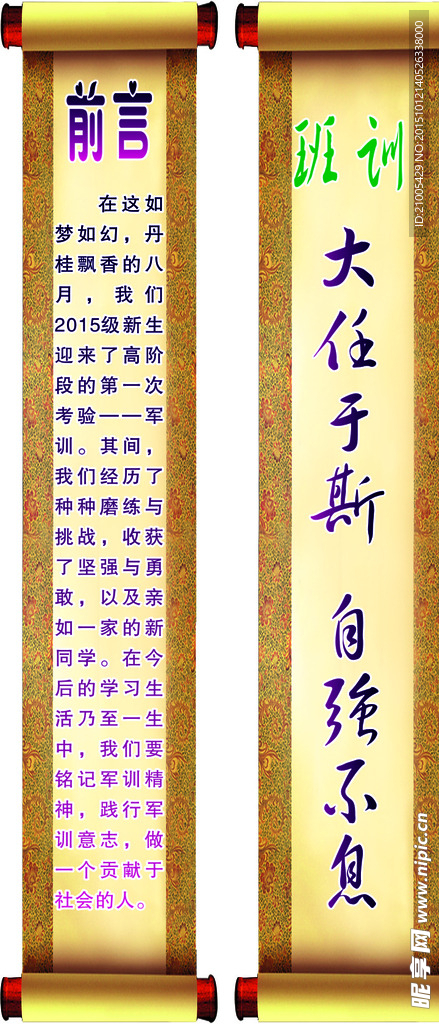 前言
在这如
梦如幻，丹
桂飘香的八
月，我们
2015级新生
迎来了高阶
段的第一次
考验——军
训。其间，
我们经历了
种种磨练与
挑战，收获
了坚强与勇
敢，以及亲
如一家的新
同学。在今
后的学习生
活乃至一生
中，我们要
铭记军训精
神，践行军
训意志，做
一个贡献于
社会的人。
班训
大任于斯 自強不息
ID:21005429 NO:20151012140526338000
昵享网 www.nipic.cn